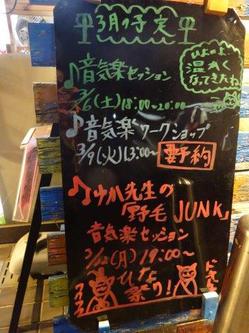 3月の予定
いよいよ
温かく
なってきたわ
♪音気楽セッション
3/6(土)18:00~20:00
♪音気楽ワークショップ
3/9(火)13:00~ 要予約
♪ウハ先生の
野毛JUNK
音気楽セッション
(月)19:00~
ひな
祭り!